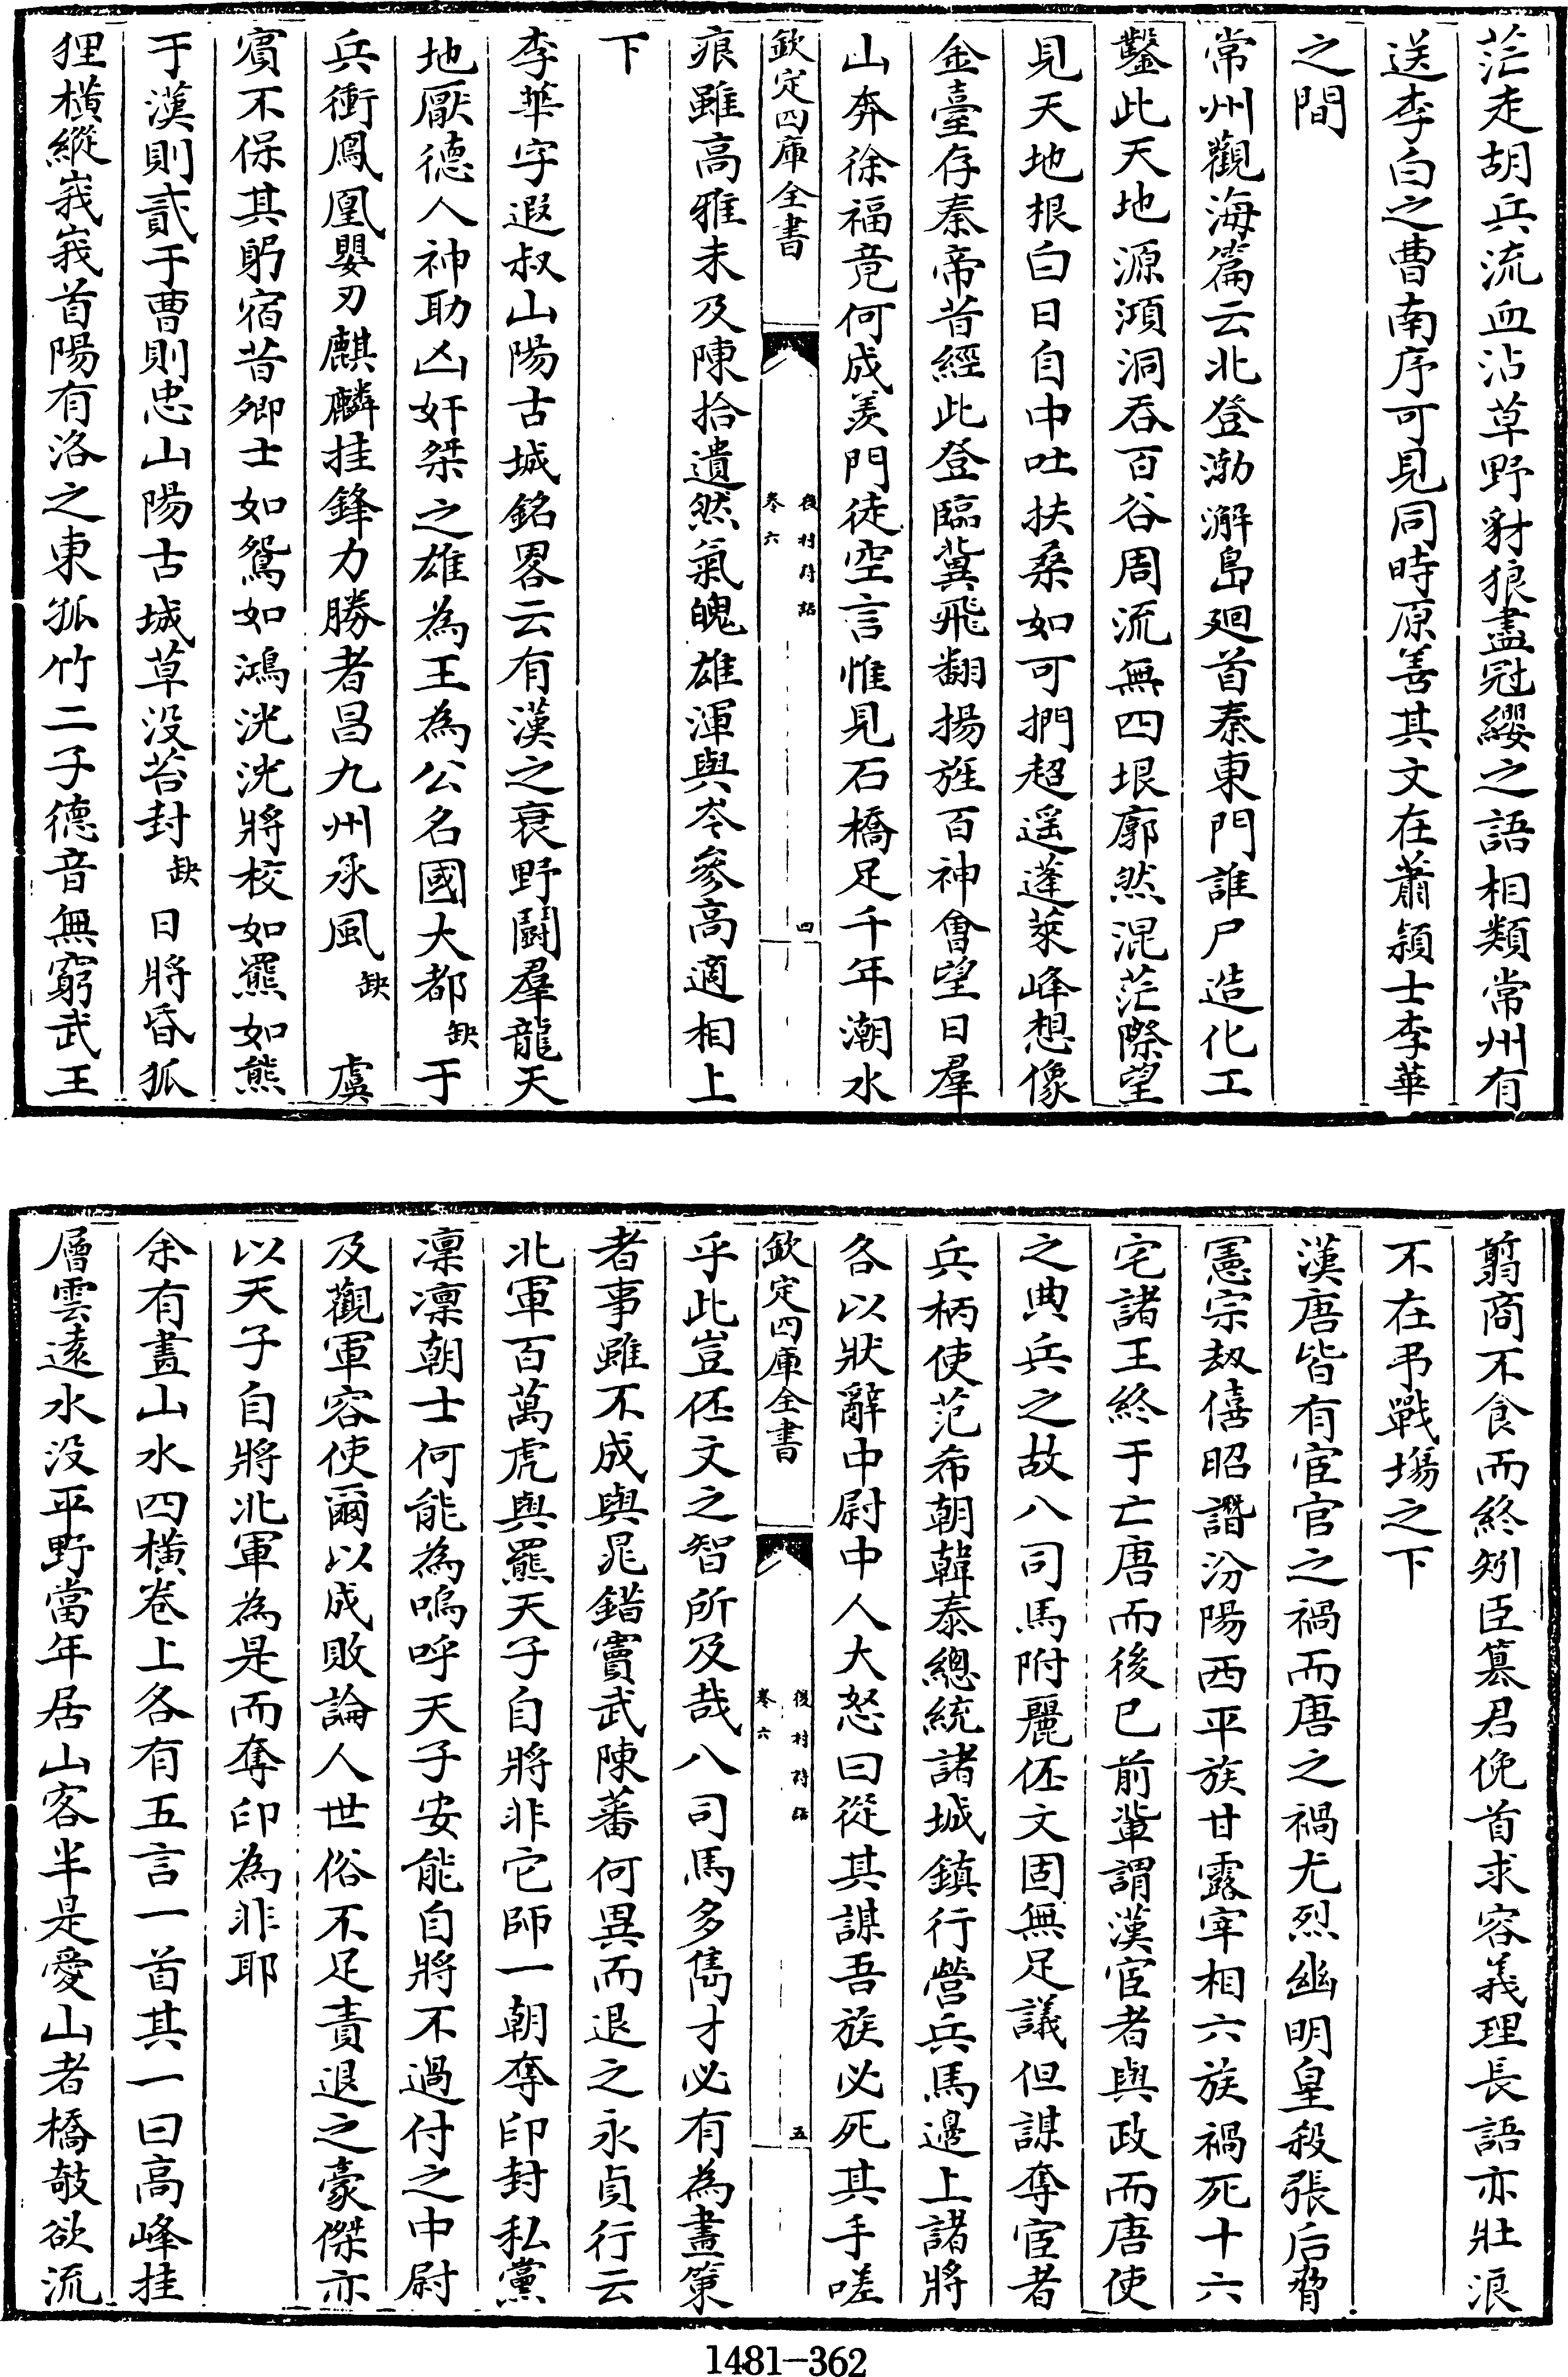 茫走胡兵流血沾草野豺狼盡冠纓之語相類常州有
送李白之曹南序可見同時原善其文在蕭頴士李華
之間
常州觀海篇云北登渤澥島廻首秦東門誰尸造化工
鑿此天地源澒洞吞百谷周流無四垠廓然混茫際望
見天地根白日自中吐扶桑如可捫超遥蓬萊峰想像
金臺存秦帝昔經此登臨冀飛翻揚旌百神會望日羣
山奔徐福竟何成羡門徒空言惟見石橋足千年潮水
欽定四庫全書
後村詩話
卷六
四
痕雖高雅未及陳拾遺然氣魄雄渾與岑參高適相上
下
李華字遐叔山陽古城銘畧云有漢之衰野鬭羣龍天
地厭德人神助凶奸桀之雄為王為公名國大都缺于
兵衝鳳凰嬰刃麒麟挂鋒力勝者昌九州承風缺 虞
賔不保其躬宿昔卿士如鴛如鴻洸洸將校如羆如熊
于漢則貳于曹則忠山陽古城草没苔封缺 日將昏狐
狸橫縱峩峩首陽有洛之東孤竹二子德音無窮武王
翦商不食而終矧臣簒君俛首求容義理長語亦壯浪
不在弔戰塲之下
漢唐皆有宦官之禍而唐之禍尤烈幽明皇殺張后脅
憲宗刼僖昭譖汾陽西平族甘露宰相六族禍死十六
宅諸王終于亡唐而後已前輩謂漢宦者與政而唐使
之典兵之故八司馬附麗伾文固無足議但謀奪宦者
兵柄使范希朝韓泰總統諸城鎮行營兵馬邊上諸將
各以狀辭中尉中人大怒曰從其謀吾族必死其手嗟
欽定四庫全書
後村詩話
卷六
五
乎此豈伾文之智所及哉八司馬多雋才必有為畫策
者事雖不成與晁錯竇武陳蕃何異而退之永貞行云
北軍百萬虎與羆天子自將非它師一朝奪印封私黨
凜凜朝士何能為嗚呼天子安能自將不過付之中尉
及觀軍容使爾以成敗論人世俗不足責退之豪傑亦
以天子自將北軍為是而奪印為非耶
余有畫山水四橫卷上各有五言一首其一曰高峰挂
層雲遠水没平野當年居山客半是愛山者橋攲欲流
1481-362